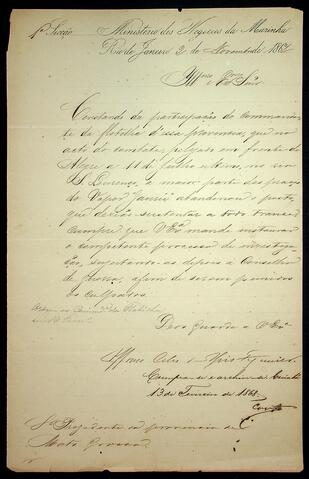 1ª Secção Ministerio dos Negocios da Marinha
Rio de Janeiro 2 de Novembro de 1867
Illmo e Exmo Snr
Constando da participação do commandan-
te da flotilha d'essa provincia, que no
acto do combate, pelejado em frente do
Alegre a 11 de Junho ultimo, no rio
S. Lourenço, a maior parte das praças
do Vapor Jaurú abandonou o posto,
que devião sustentar a todo transe;
cumpre que V Exª mande instaurar
o competente processo de investiga-
ção, sujeitando-as depois a Conselho
de Guerra, afim de serem punidos
os culpados.
Deos Guarde a V Exª
Affonso Celso de Assis Figueiredo
Cumpra-se e archive-se. Cuiabá
13 de Janeiro de 1868.
Snr Presidente da provincia de
Mato Grosso